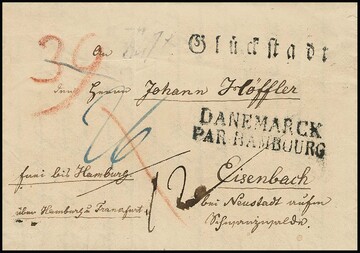 Glückstadt
39
An
den Herrn Johann Höffler
DANEMARCK
PAR HAMBOURG
26
frei bis Hamburg
Eisenbach
über Hamburg u Frankfurt
bei Neustadt aufm
Schwarzwalde.